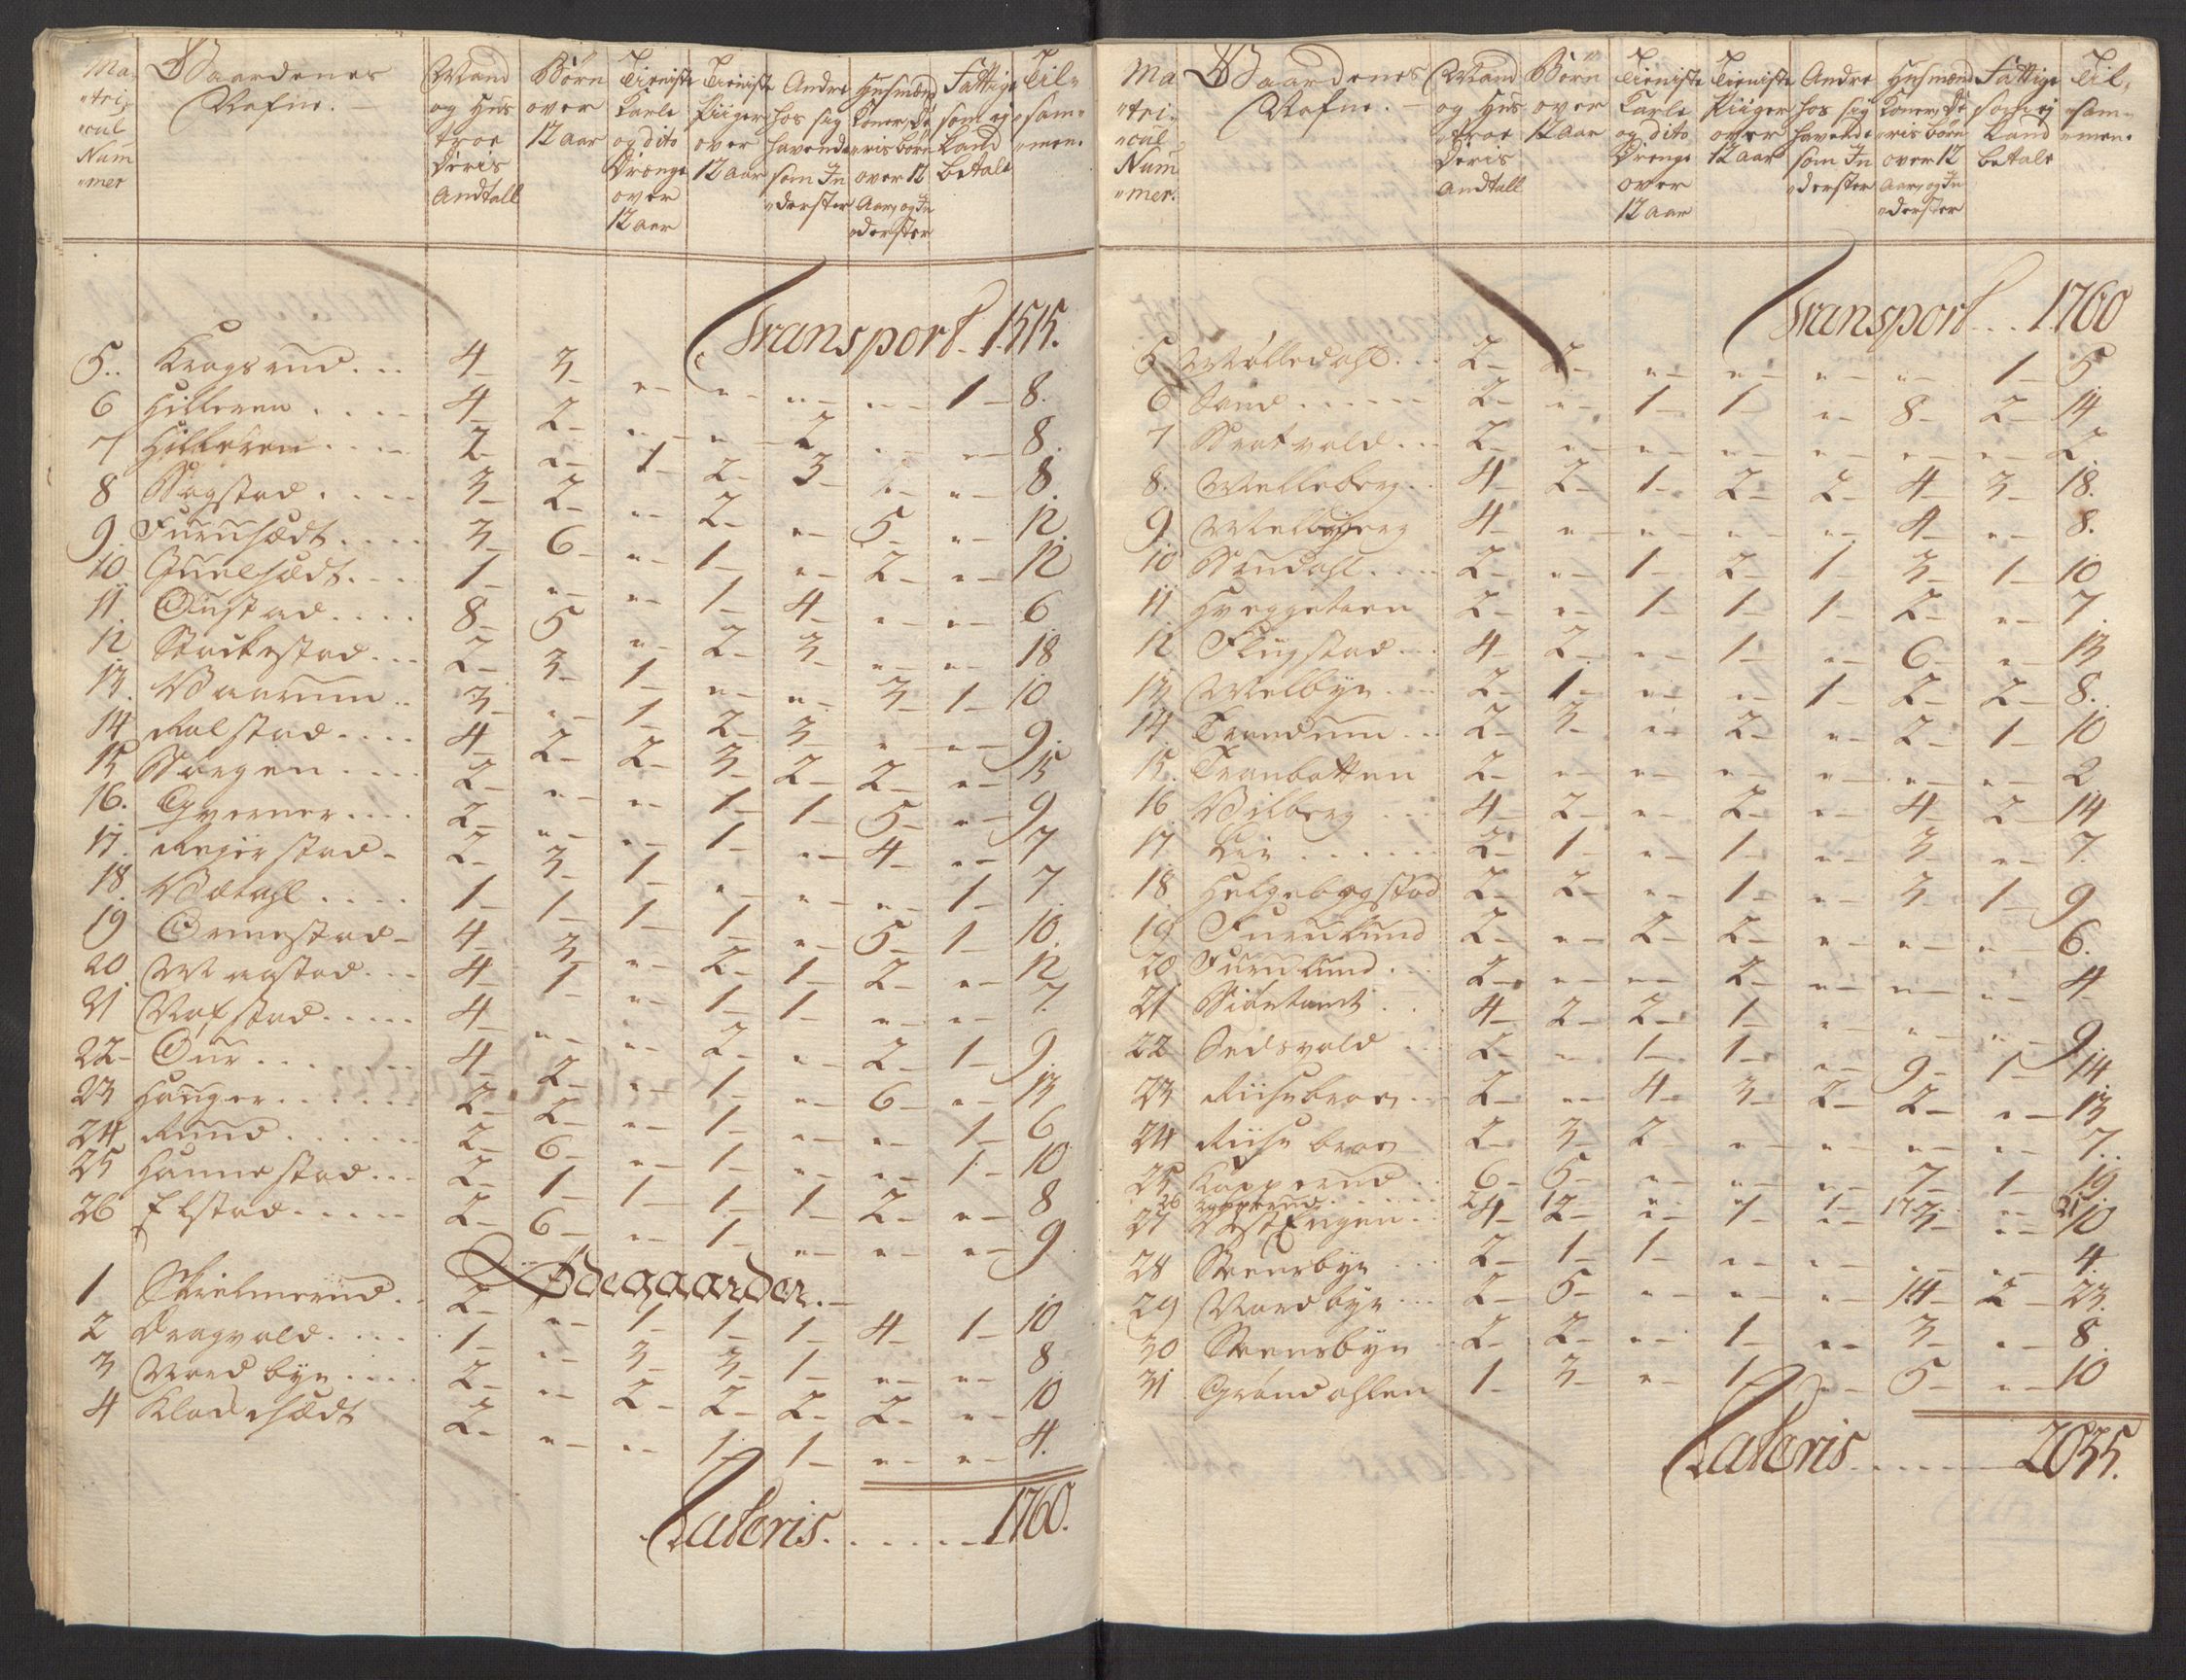 Ma- Gaardenes Mand Børn Tieniste Tieniste Andre Husmænd Fattige Til-
"tri- Nafne. og Hus over Karle Piiger hos sig Koner, De som ej "sam-
"cul troe 12 aar og dito over havende "ris børn Land "men.
Num Deris Drenge 12 aar som In over 12 betale
"mer Andtall over "derster Aar, og In
12 aar "derster
Transport. 1515.
5.. Krogsrud... 4- 3- "- "- "- "- 1- 8.
6 Hilleren.... 4- 2- "- "- 2 "- "- 8.
7 Hilleren.... 2- "- 1- 2- 3- "- "- 8.
8 Bogstad.... 3- 2- "- 2- "- 5- "- 12.
9. Furusædt.... 3- 6- "- 1- "- 2- "- 12
10. Guulsædt.... 1- "- "- 1- 4- "- "- 6.
11. Oustad.... 8- 5 "- 2- 3- "- "- 18
12 Starkestad... 2- 3- 1- "- "- 3- 1- 10
13. Baarum.. 3- "- 1- 2- 3- "- "- 9.
14 Rolstad.... 4- 2- 2- 3- 2- 2- "- 15
15 Børgen.... 2- "- "- 1- 1- 5- "- 9
16. Gverner.... 2- "- "- 1- "- 4- "- 7
17. Rejerstad- 2- 3- 1- "- "- "- 1- 7.
18. Bedahl.... 1- 1- 1- 1- "- 5- 1- 10.
19 Ormestad- 4- 3- "- 2- 1- 2- "- 12
20. Mogstad... 4- 1- "- 1- 1- "- "- 7.
21 Nafstad..... 4- "- "- 2- "- 2- 1- 9.
22- Our....... 4- 2- "- 1- "- 6- "- 13
23 Hanger...... 2- 2- "- 1- "- "- 1- 6
24 Rund...... 2- 6- "- 1- "- "- 1- 10
25 Hannestad... 2- 1- 1- 1- 1- 2- "- 8
26 Elstad..... 2- 6- "- 1- "- "- "- 9
Ødegaarder.-
1 Skielmerud.. 2- "- 1- 1- 1- 4- 1- 10
2 Dragvold.... 1- "- 3- 3- 1- "- "- 8.
3 Nordbye.... 2- "- 2- 2- 2- 2- "- 10
4 Kladesædt 2- "- "- 1- 1- "- "- 4.
Lateris....... 1760.
Ma Gaardenes Mand Børn Tieniste Tieniste Andre Husmænd Fattige Til-
"tri- Nafne.- og Hus over Karle Piiger hos sig Koner, De som ej "sam-
"cul troe 12 aar og dito over havende "ris børn Land "men.
Num Deris Drenge 12 aar som In over 12 betale
"mer. Andtall over "derster Aar, og In
12 aar "derster
Transport... 1760
5 Mølledahl... 2- 2- "- "- "- "- 1- 5
6 Sand...... 2- "- 1- 1- "- 8- 2- 14
7 Bratvold... 2- "- "- "- "- "- "- 2.
8. Melleberg.. 4- 2- 1- 2- 2- 4- 3- 18.
9. Melbyerg 4- "- "- "- "- 4- "- 8.
10 Bundahl.... 2- "- 1- 2- 1- 3- 1- 10
11 Hveggetaen 2- "- 1- 1- 1- 2- "- 7.
12 Flugstad... 4- 2- "- 1- "- 6- "- 13
13 Melbye.... 2- 1- "- "- 1- 2- 2- 8.
14 Trandum... 2- 3- "- 2- "- 2- 1- 10
15. Tranbotten 2- "- "- "- "- "- "- 2
16 Bilberg... 4- 2- "- 2- "- 4- 2- 14
17 Lie...... 2- 1- "- 1- "- 3- "- 7.
18. Helgebogstad 2- 2- "- 1- "- 3- 1- 9
19 Furulund 2- "- 2- 2- "- "- "- 6.
20 Furulund... 2- "- "- 2- "- "- "- 4-
21 Siøetomt... 4- 2- 2- 1- "- "- "- 9.
22 Sedsvold... 2- "- 1- 1- "- 9- 1- 14
23 Riisebroe... 2- "- 4- 3- 2- 2- "- 13
24 Riise broe 2- 3- 2- "- "- "- "- 7..
25 Kopperud.. 6- 5- "- "- "- 7- 1- 19
26 Kopperud...... 2 1 "- "- 1- 17 "- 21
27 VestEngen.. 4- 2- "- 1- "- 3- "- 10
28 Steensbye.... 2- 1- 1- "- "- "- "- 4.
29 Nordbye.... 2- 5- "- "- "- 14- 2- 23.
30 Steensbye.. 2- 2- "- 1- "- 3- "- 8.
31 Grøndahlen 1- 3- "- 1- "- 5- "- 10
Lateris....... 2035.